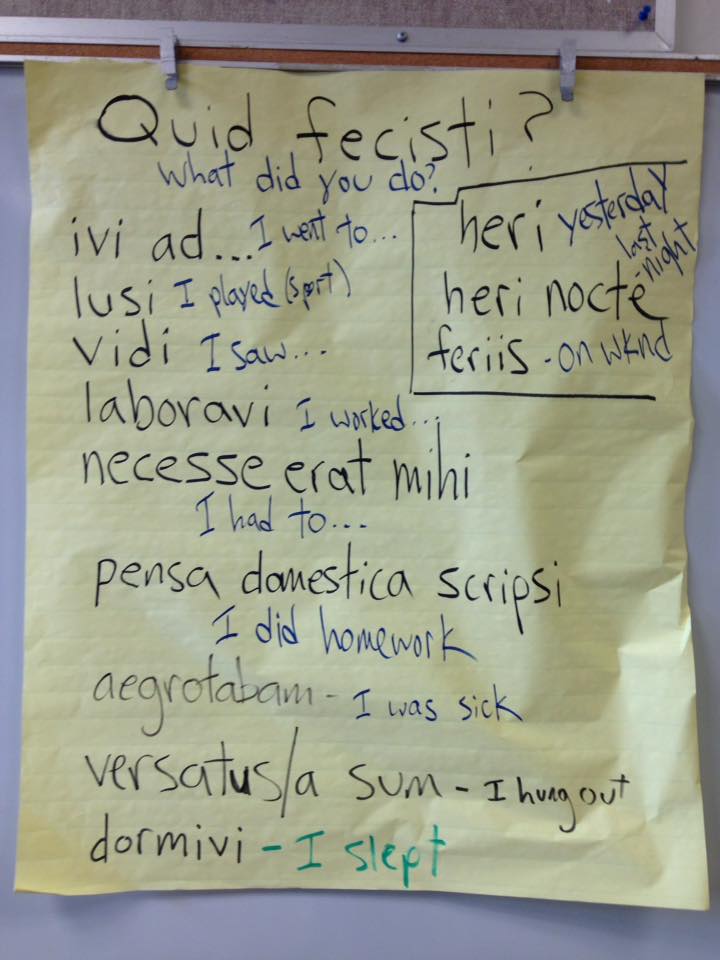 Quid fecisti?
What did you do?
ivi ad... I went to...
lusi I played (sport)
vidi I saw...
laboravi I worked...
necesse erat mihi
I had to...
pensa domestica scripsi
I did homework
aegrotabam - I was sick
versatus/a sum - I hung out
dormivi - I slept
heri yesterday
heri nocte last night
feriis - on wknd